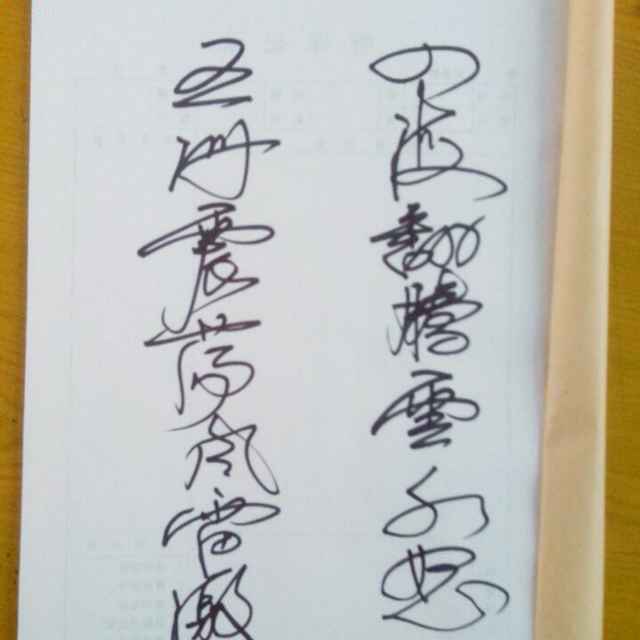 四海翻騰雲水怒
五洲震荡风雷激